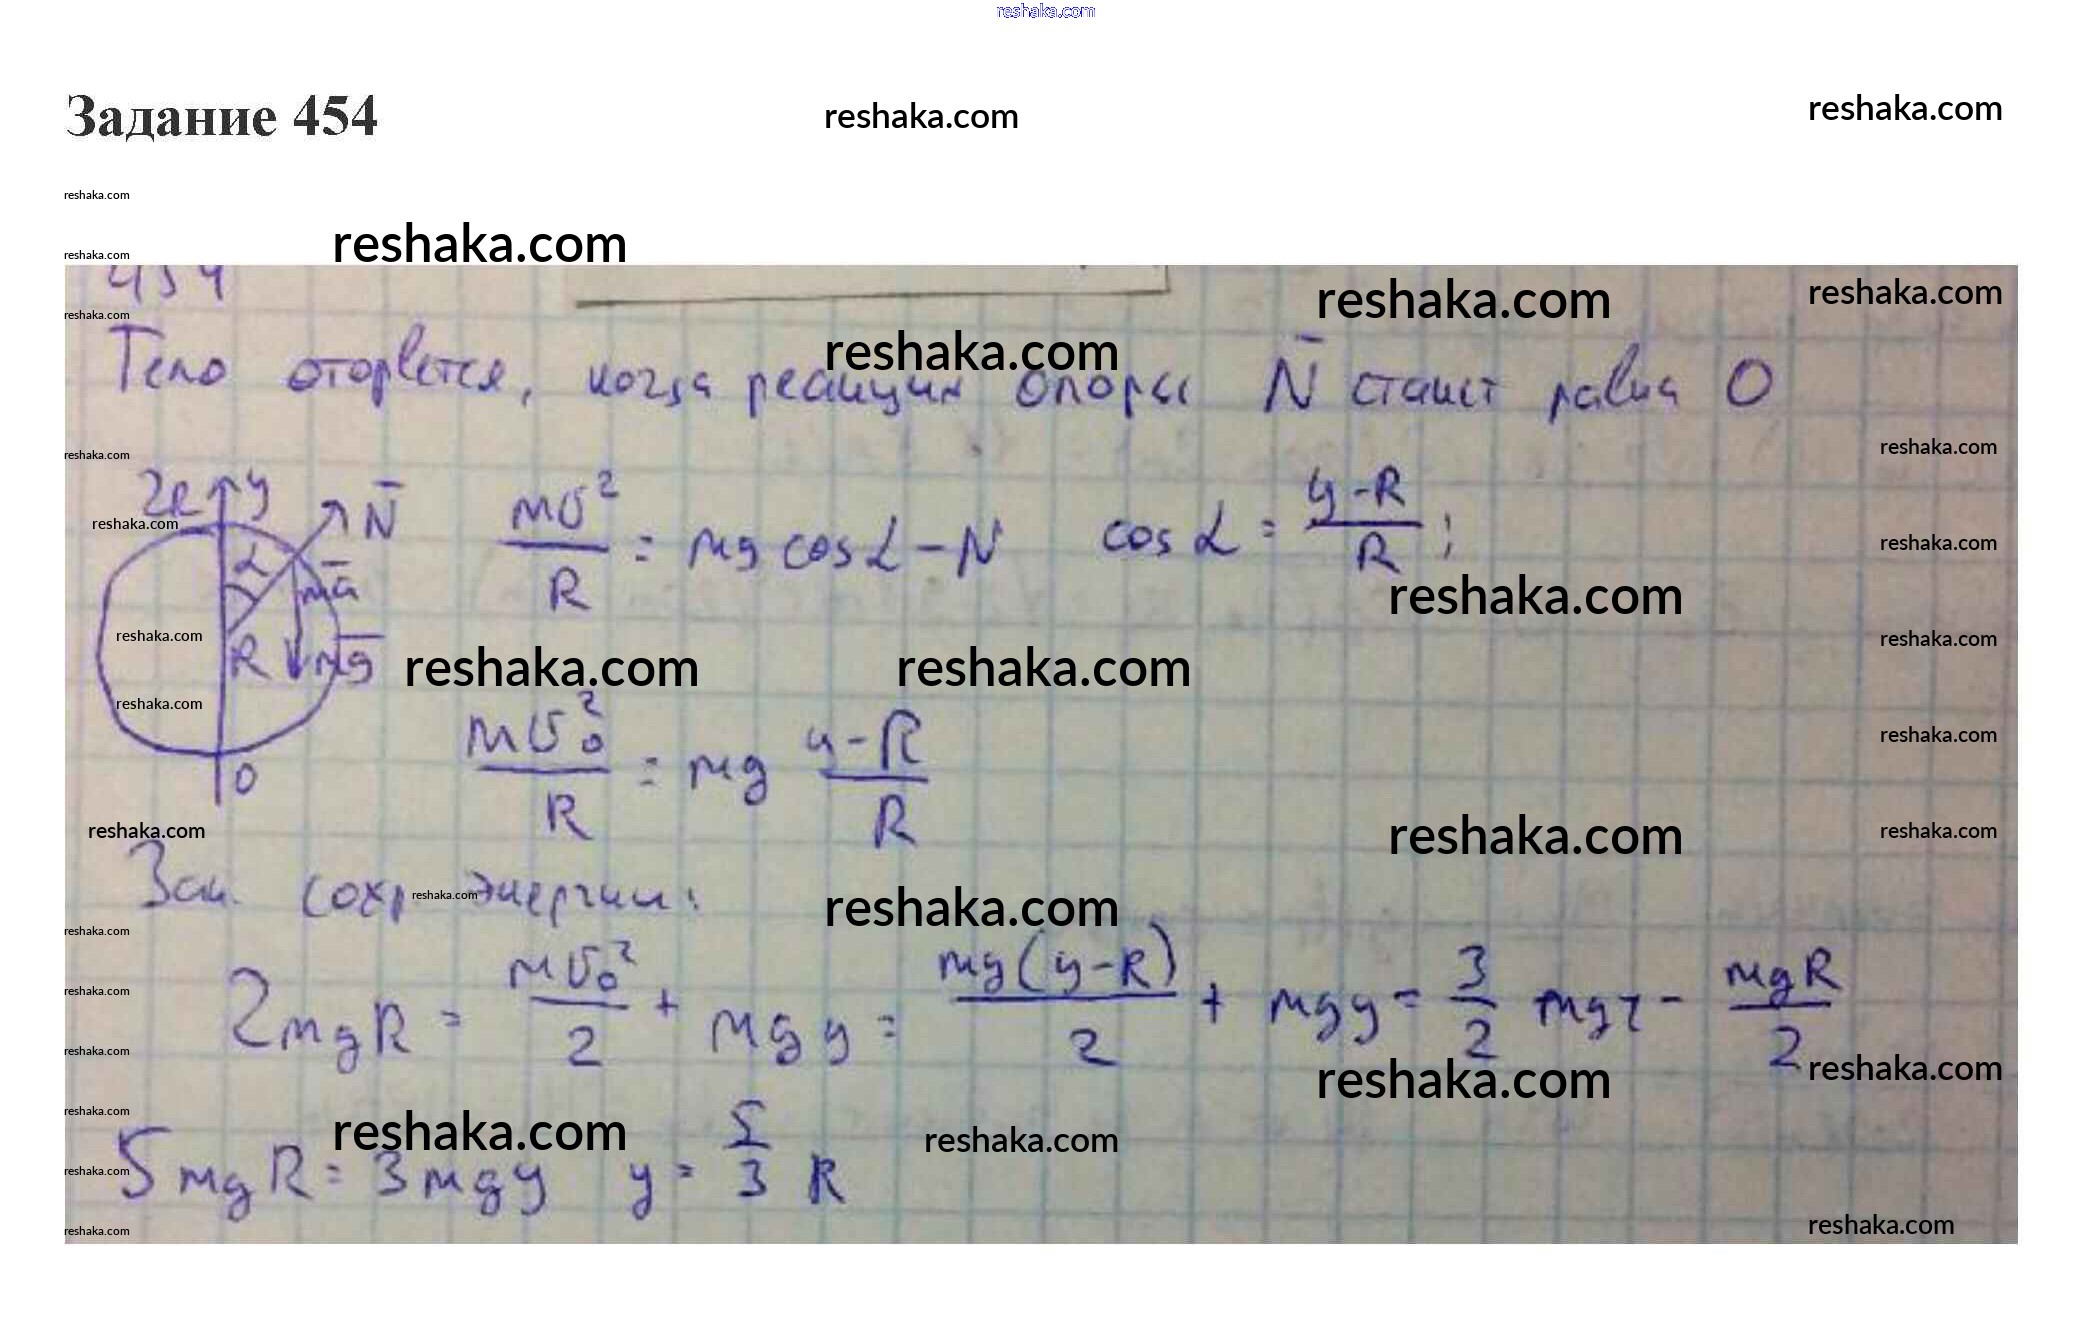 reshaka.com
Задание 454
reshaka.com
reshaka.com
reshaka.com
reshaka.com
reshaka.com
454
reshaka.com
reshaka.com
reshaka.com
Тело оторвется, когда реакция опоры N̄ станет равна 0
reshaka.com
reshaka.com
reshaka.com
2R y N̄
α
mā
R
mḡ
0
reshaka.com
reshaka.com
reshaka.com
mυ²/R = mg cos α − N cos α = (y−R)/R ;
reshaka.com
reshaka.com
reshaka.com
reshaka.com
reshaka.com
reshaka.com
mυ₀²/R = mg (y−R)/R
reshaka.com
reshaka.com
reshaka.com
reshaka.com
Зак. сохр энергии:
reshaka.com
reshaka.com
reshaka.com
2mgR = mυ₀²/2 + mgy = mg(y−R)/2 + mgy = 3/2 mgy − mgR/2
reshaka.com
reshaka.com
reshaka.com
reshaka.com
reshaka.com
reshaka.com
reshaka.com
5mgR = 3mgy y = 5/3 R
reshaka.com
reshaka.com
reshaka.com